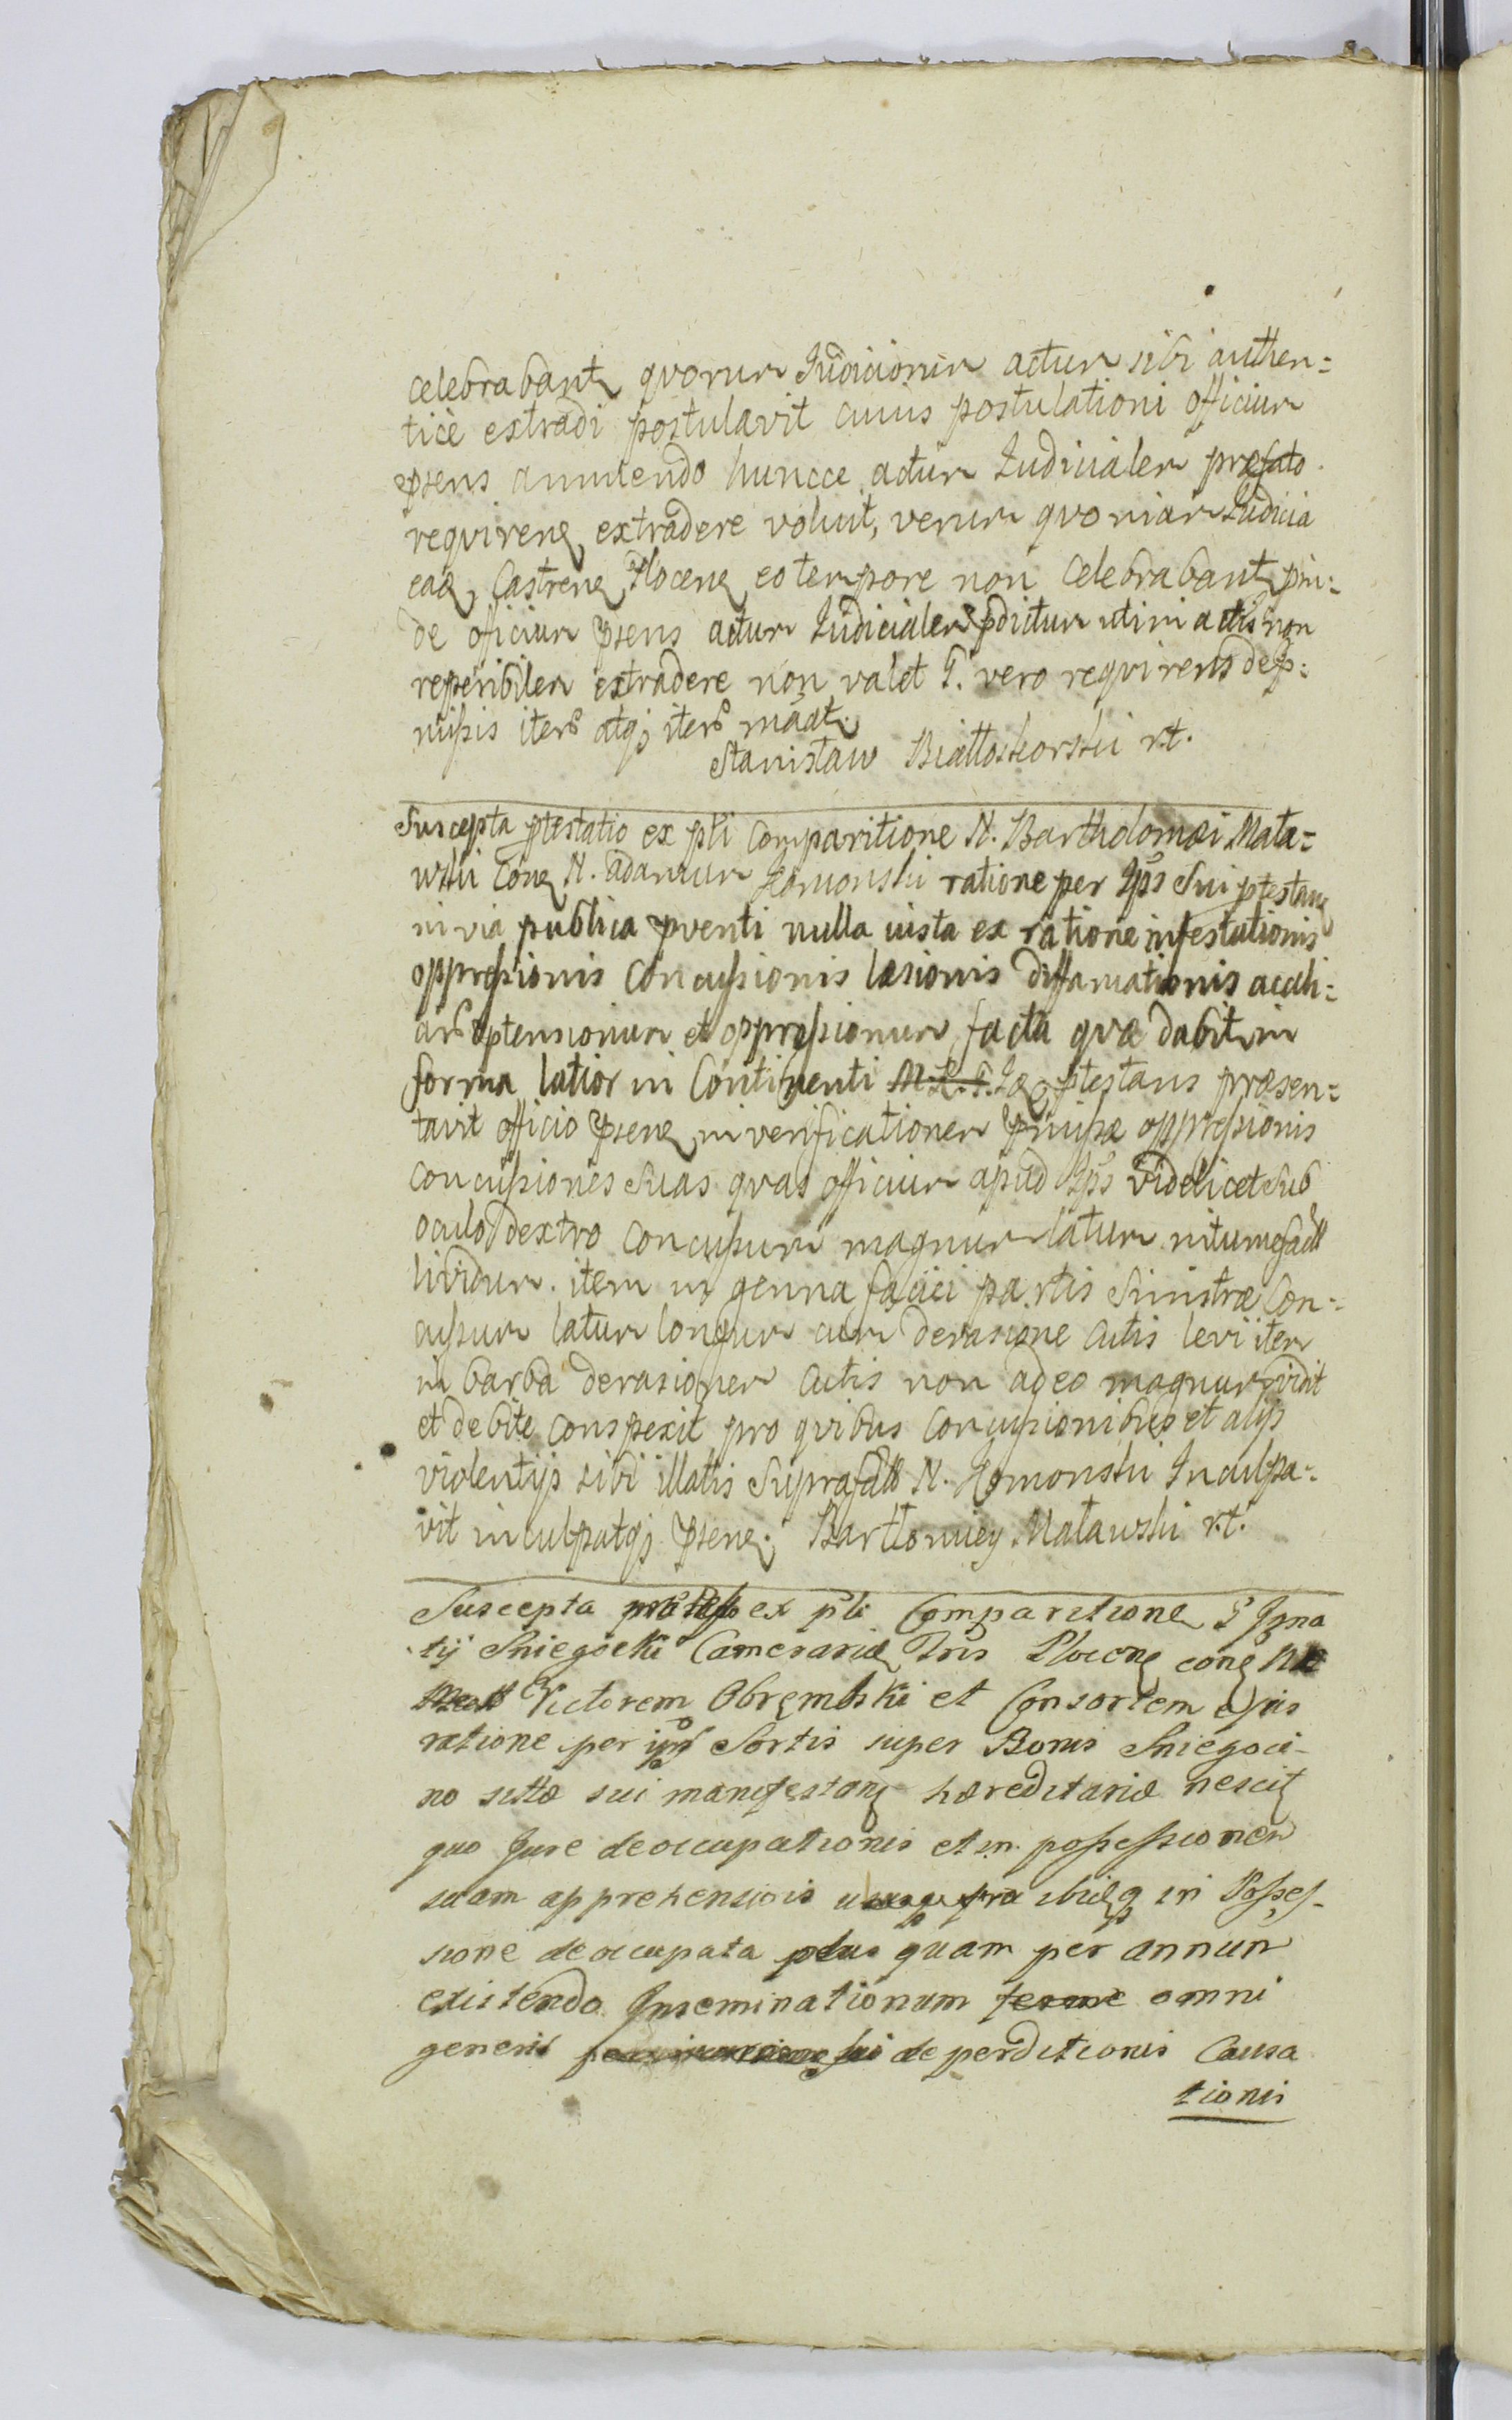 celebrabant quorum Judiciorum actum sibi authen=
ticè extradi postulavit cuius postulationi officium
pſens annuendo huncce actum Judicialem præfato
requirenꝫ extradere voluit, verum quoniam Judicia
eaꝫ Castrenꝫ Plocenꝫ eo tempore non celebrabant proin:
de officium pſens actum Judicialem pdictum uti in actis non
reperibilem extradere non valet G. vero requirens de p:
miſsis iterũ atqꝫ iterũ mãat.
Stanisław Białłoskorski rt.
Suscepta ptestatio ex pſti Comparitione N. Bartholomæi Mała=
wski Conꝫ N. Adamum Homonski ratione per Ipſ̃ Sui ptestanꝫ
in via publica pventi nulla iusta ex ratione infestationis
oppreſsionis Concuſsionis læsionis diffamationis acali:
arũ ptensionum et oppreſsionum facta quæ dabit in
forma latior in Continenti M. R. T. Iꝫ ptestans præsen=
tavit officio pſenꝫ in verificationem pmiſsæ oppreſsionis
concuſsiones suas quas officium apud Ipſ̃ videlicet sub
oculo dextro concuſsum magnum latum intumefactũ
lividum. item in genna faciei partis Sinistræ Con:
cuſsum latum longum cum derasione cutis levi item
in barba derasionem cutis non adeo magnum vidit
et debite conspexit pro quibus concuſsionibus et alijs
violentijs sibi illatis Suprafatũ N. Homonski Inculpa:
vit inculpatqꝫ pſenꝫ. Bartłomiey Maławski rt.
Suscepta ex pſti Comparitione G Igna
tij Sniegocki Camerariæ Tris Plocenꝫ conꝫ
Victorem Obrembski et Consortem Ejus
ratione per ipſ̃ Sortis super Bonis Sniegoci-
no sittæ sui manifestanꝫ hæreditariæ nescit
quo Jure deoccupationis et in poſseſsionem
suam apprehensionis in Poſseſ-
sione deoccupata plus quam per annum
existendo Inseminationum omni
generis deperditionis Causa
tionis